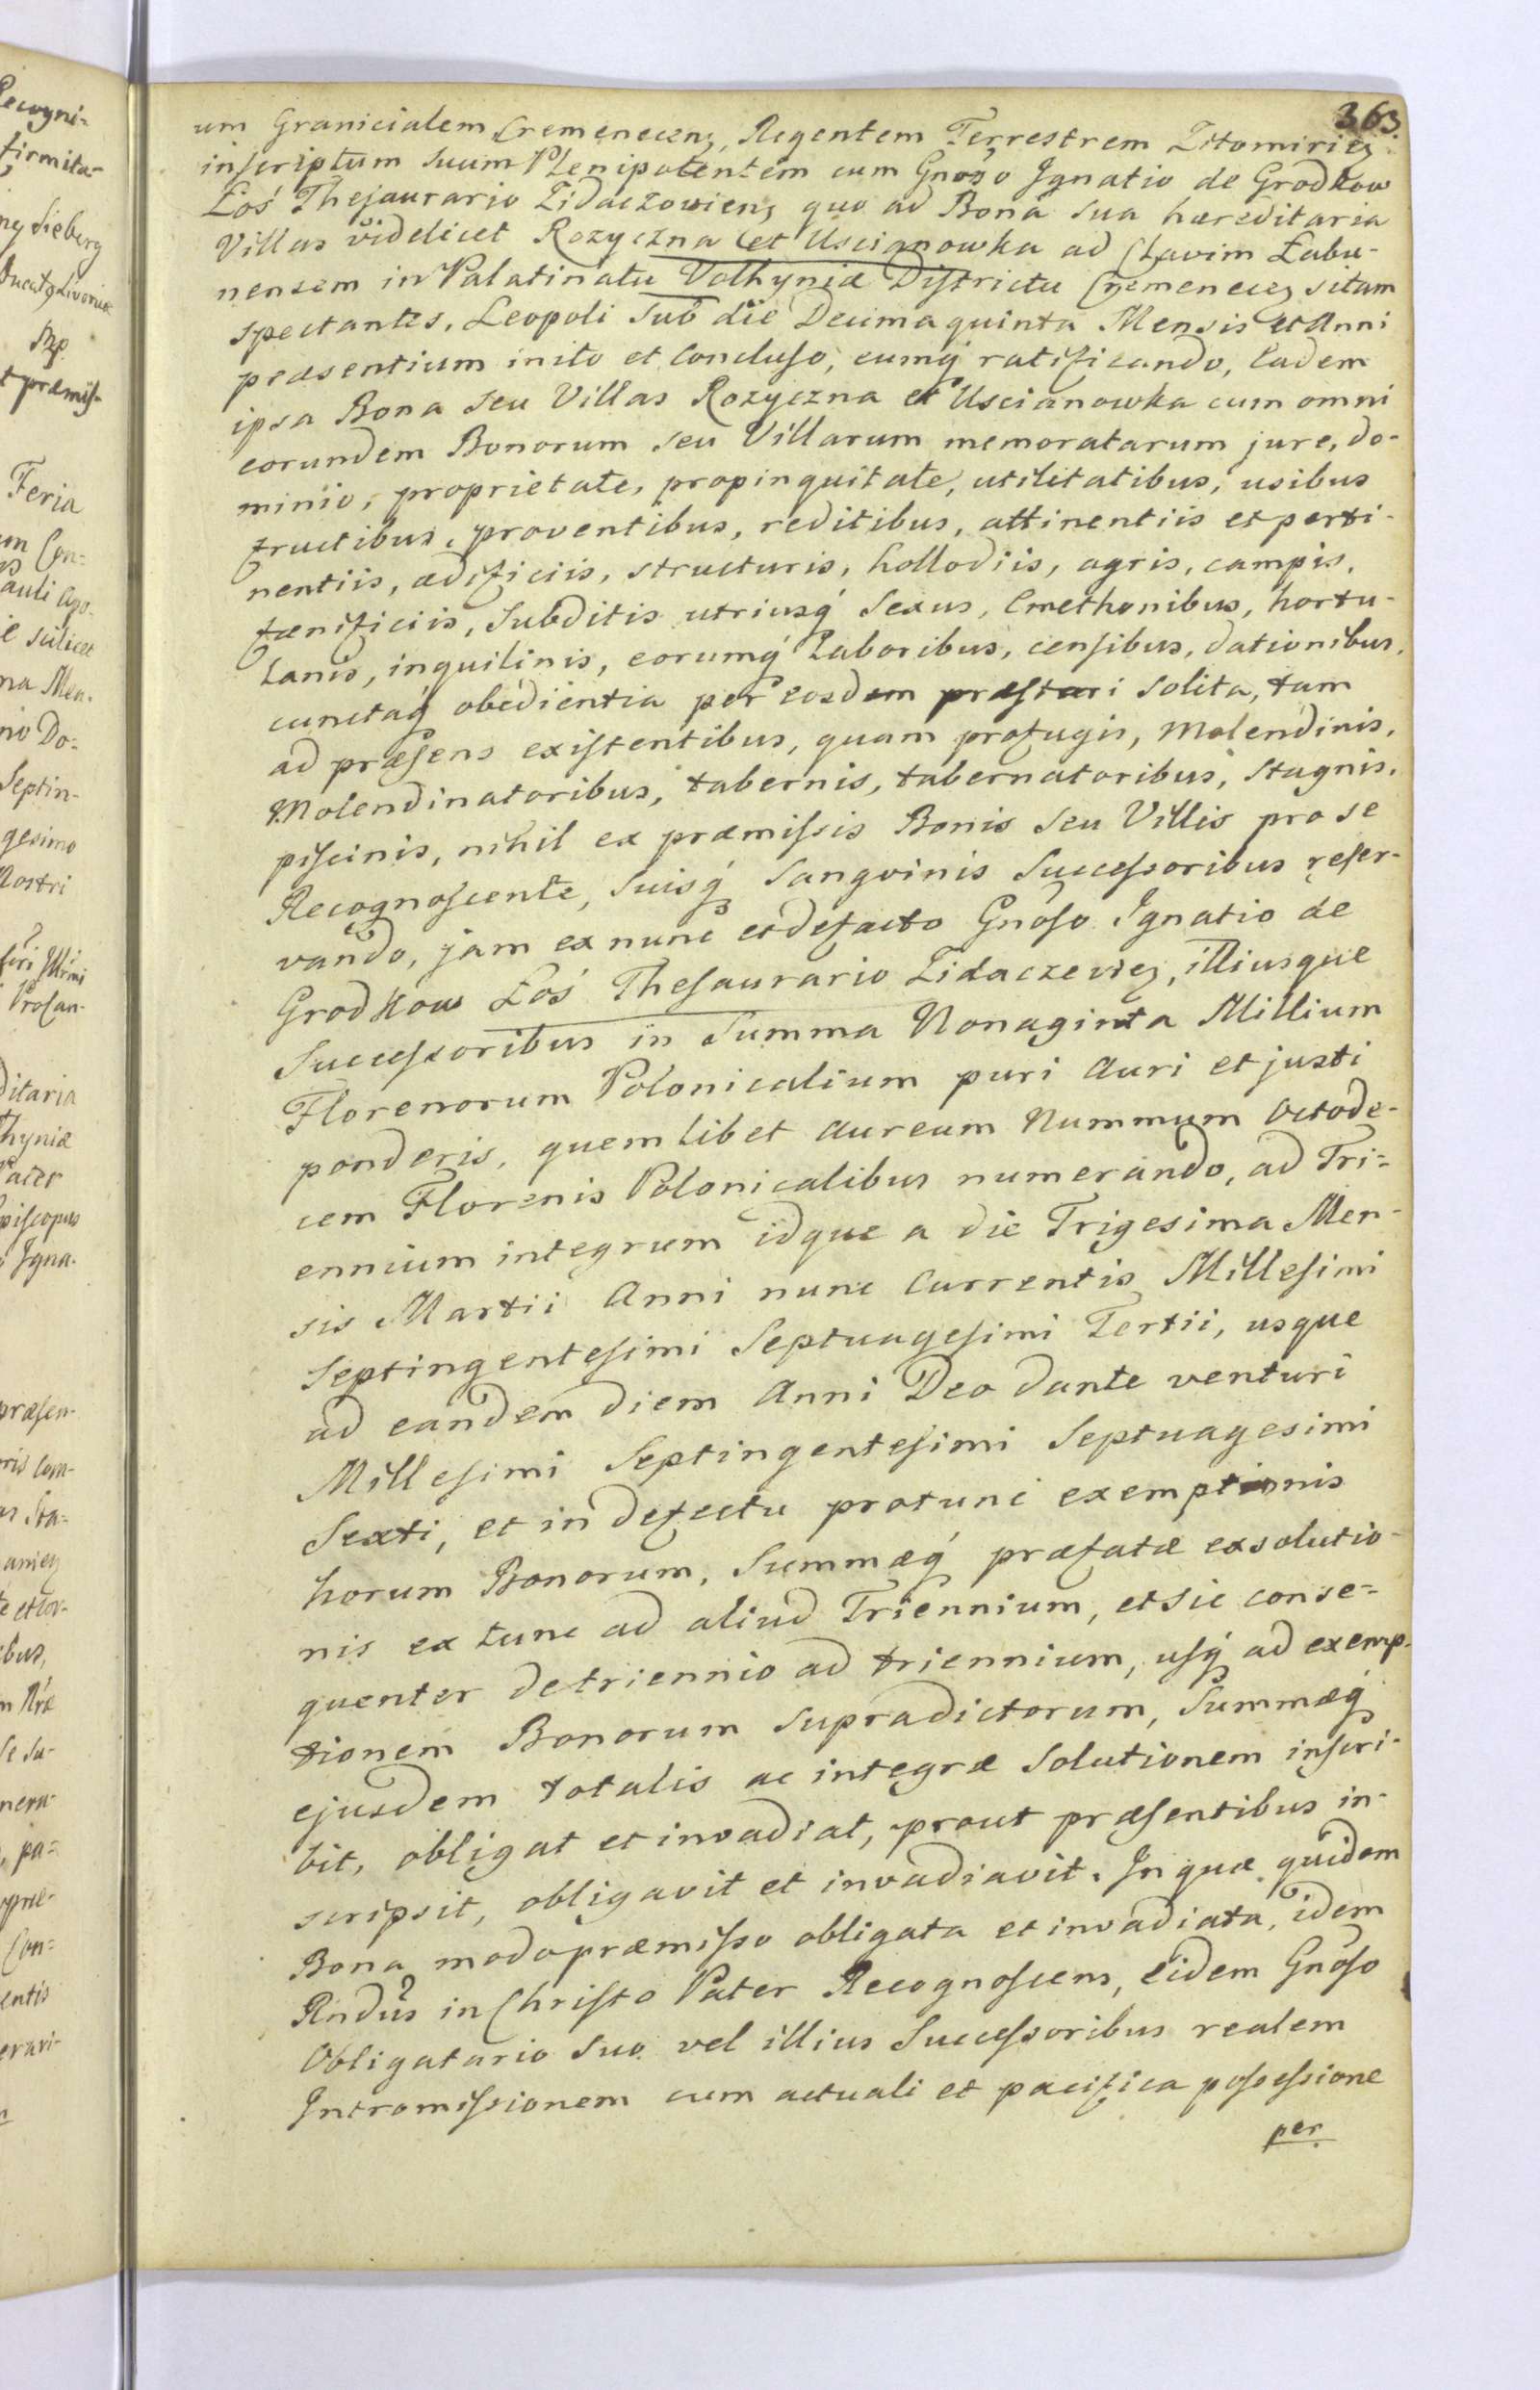 363
um Granicialem Cremenecens, Regentem Terrestrem Zitomiriens
inscriptum suum Plenipotentem cum Gnoso Ignatio de Grodkow
Łoś Thesaurario Zidaczowiens quo ad Bona sua hæreditaria
Villas videlicet Rozyczna et Uscianowka ad Clavim Łabu-
nensem in Palatinatu Volhyniæ Districtu Cremenecens sitam
spectantes, Leopoli sub die Decima quinta Mensis et Anni
præsentium inito et Concluso, eumq́ ratificando, Eadem
ipsa Bona seu Villas Rozyczna et Uscianowka cum omni
eorundem Bonorum seu Villarum memoratarum jure, do-
minio, proprietate, propinquitate, utilitatibus, usibus
fructibus, proventibus, reditibus, attinentiis et perti-
nentiis, ædificiis, structuris, hollodiis, agris, campis,
fænificiis, Subditis utriusq́ Sexus, Cmethonibus, hortu-
lanis, inquilinis, eorumq́ laboribus, censibus, dationibus,
cunctaq́ obedientia per eosdem præstari solita, tam
ad præsens existentibus, quam profugis, Molendinis,
Molendinatoribus, tabernis, tabernatoribus, stagnis,
piscinis, nihil ex præmissis Bonis seu Villis pro se
Recognoscente, suisq́ sangvinis Successoribus reser-
vando, jam ex nunc et defacto Gnoso Ignatio de
Grodkow Łoś Thesaurario Zidaczewiens, illiusque
Successoribus in Summa Nonaginta Millium
Florenorum Polonicalium puri Auri et justi
ponderis, quemlibet aureum Nummum Octode-
cem Florenis Polonicalibus numerando, ad Tri-
ennium integrum idque a die Trigesima Men-
sis Martii Anni nunc Currentis Millesimi
Septingentesimi Septuagesimi Tertii, usque
ad eandem diem Anni Deo dante venturi
Millesimi Septingentesimi Septuagesimi
Sexti, et in defectu protunc exemptionis
horum Bonorum, Summæq́ præfatæ exsolutio-
nis ex tunc ad aliud Triennium, et sic conse-
quenter de triennio ad triennium, usq́ ad exemp-
tionem Bonorum supradictorum, Summæq́
ejusdem totalis ac integræ solutionem inscri-
bit, obligat et invadiat, prout præsentibus in-
scripsit, obligavit et invadiavit. In quæ quidem
Bona modo præmisso obligata et invadiata, idem
Rndus in Christo Pater Recognoscens, eidem Gnoso
Obligatario suo vel illius Successoribus realem
Intromissionem cum actuali et pacifica possessione
per